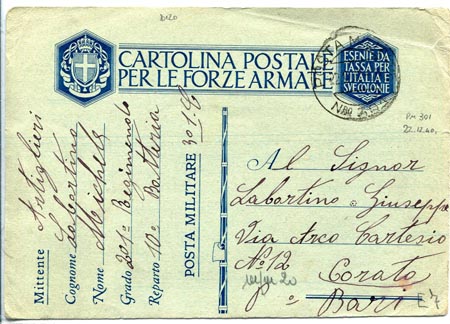 D120
CARTOLINA POSTALE
PER LE FORZE ARMATE
ESENTE DA
TASSA PER
L'ITALIA E
SVE COLONIE
POSTA
PM 301
22.12.40.
Mittente Artiglieri
Cognome Labartino
Nome Michele
Grado 201º Regimendo
Reparto 10º Battheria
POSTA MILITARE 301.
Al Signor
Labortino Giuseppe
Via Arco Cartesio
Nº 12 Corato
pº Bari